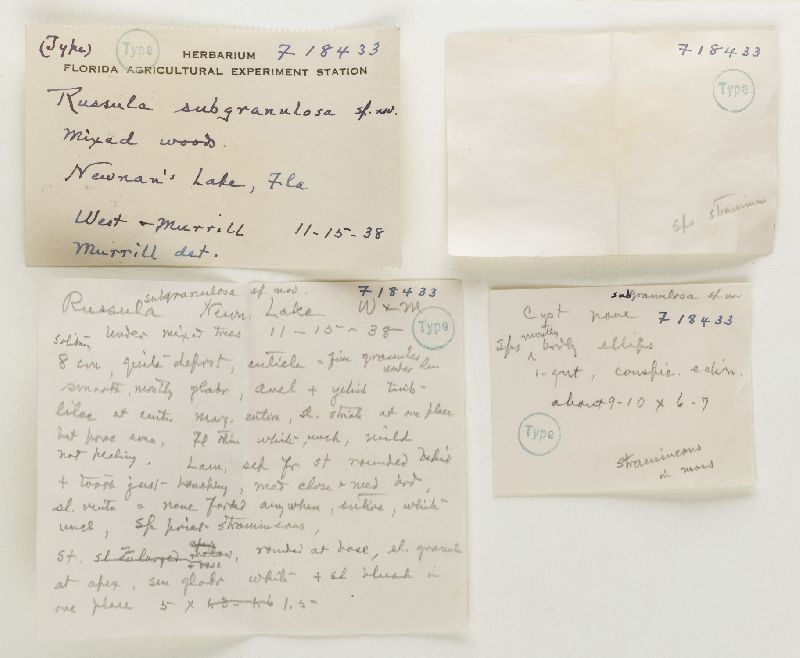 (Type) Type HERBARIUM F 18433
FLORIDA AGRICULTURAL EXPERIMENT STATION
Russula subgranulosa sp. nov.
Mixed woods.
Newnan's Lake, Fla
West + Murrill 11-15-38
Murrill det.
F 18433
Type
sps stramineous
subgranulosa sp. nov. F 18433
Russula Newn. Lake W & M
Solitary under mixed trees 11-15-38 Type
8 cm, quite depost, cuticle = fine granules under lens
smooth, mostly glabr, avel + yelish
lilac at cente, marg. entire, sl. striate at one place
but prob even, Fl thin white, unch, mild
not peeling. Lam, sep fr st rounded behind
+ tooth just touching, med close + med brd,
sl. ventr + none forked anywhere, entire, white
unch, Sp print stramineous,
St. sl enlarged below, rounded at base, sl. granule
at apex, glabr white + sl blush in
one place 5 x 1.5
subgranulosa sp. nov
Cyst none F 18433
Sps mostly brdly ellips
1-gut, conspic. echin.
about 9-10 x 6-7
Type
stramineous
in mass